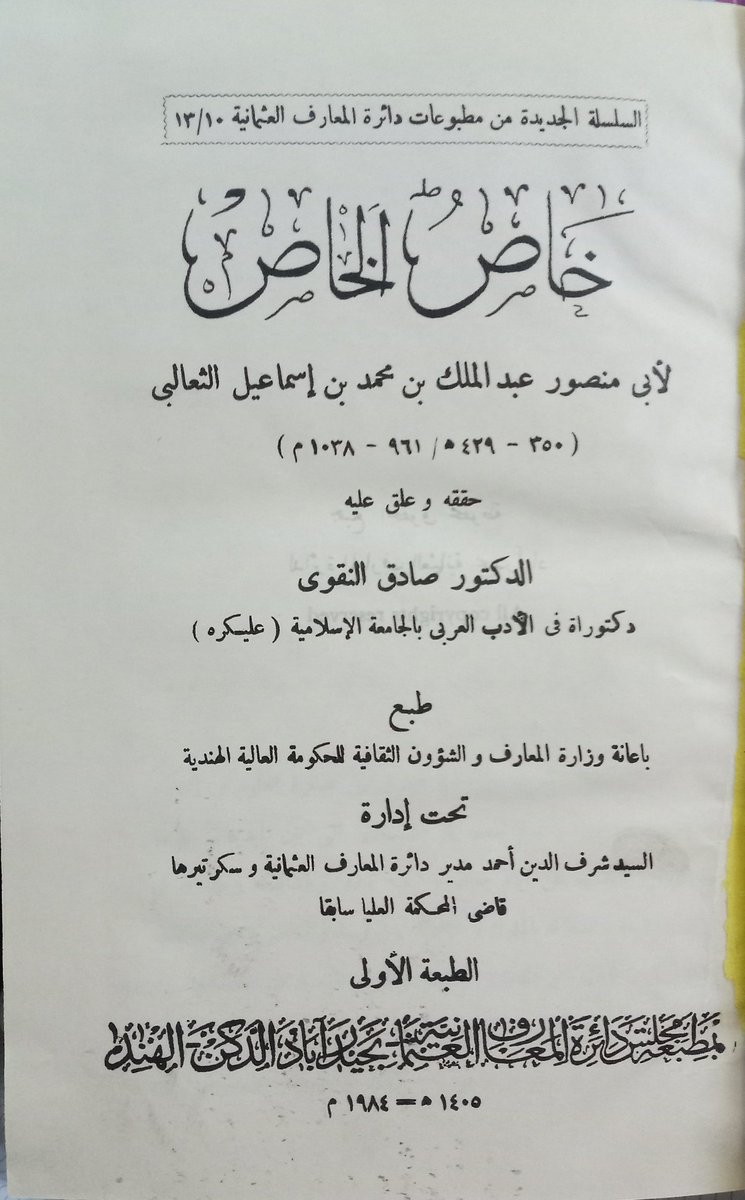 السلسلة الجديدة من مطبوعات دائرة المعارف العثمانية ١٣/١٠
خَاصُّ الخَاصّ
لأبى منصور عبد الملك بن محمد بن إسماعيل الثعالبى
( ٣٥٠ - ٤٢٩ ھ / ٩٦١ - ١٠٣٨ م )
حققه و علق عليه
الدكتور صادق النقوى
دكتوراة فى الأدب العربى بالجامعة الإسلامية ( عليكره )
طبع
باعانة وزارة المعارف و الشؤون الثقافية للحكومة العالية الهندية
تحت إدارة
السيد شرف الدين أحمد مدير دائرة المعارف العثمانية و سكرتيرها
قاضى المحكمة العليا سابقا
الطبعة الأولى
بمطبعة مجلس دائرة المعارف العثمانية بحيدرآباد الدكن الهند
١٤٠٥ ھ = ١٩٨٤ م